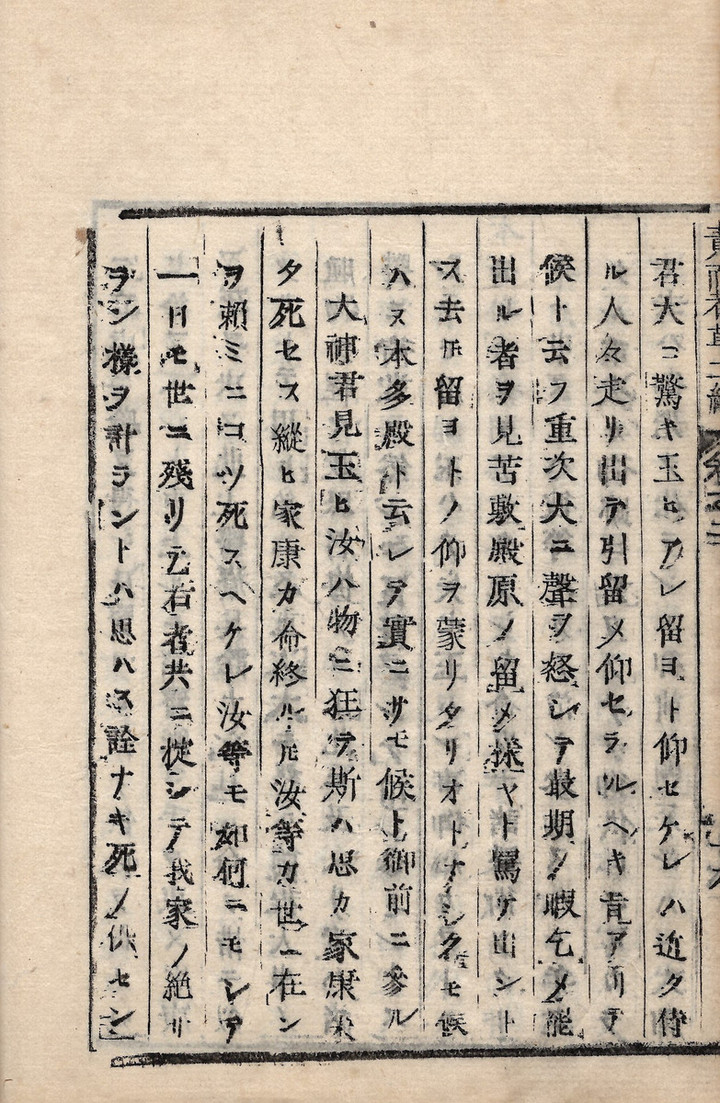 君大ニ驚キ玉ヒアレ留ヨト仰セケレハ近ク侍
ル人々走リ出テ引留メ仰セラルヘキ旨アリテ
候ト云フ重次大ニ聲ヲ怒シテ最期ノ暇乞メ能
出ル者ヲ見苦敷殿原ノ留メ採ヤト罵サ出ント
ス去𪜈留ヨトノ仰ヲ蒙リタリオトナシクモ候
ハス本多殿ト云レテ實ニサモ候ト御前ニ參ル
大神君見玉ヒ汝ハ物ニ狂テ斯ハ思カ家康未
タ死セス縱ヒ家康カ命終ル𪜈汝等カ世ニ在ン
ヲ頼ミニコソ死スヘケレ汝等モ如何ニモシテ
一日モ世ニ殘リテ若者共ニ掟シテ我家ノ絶サ
ラン樣ヲ計ラントハ思ハス詮ナキ死ノ供セン